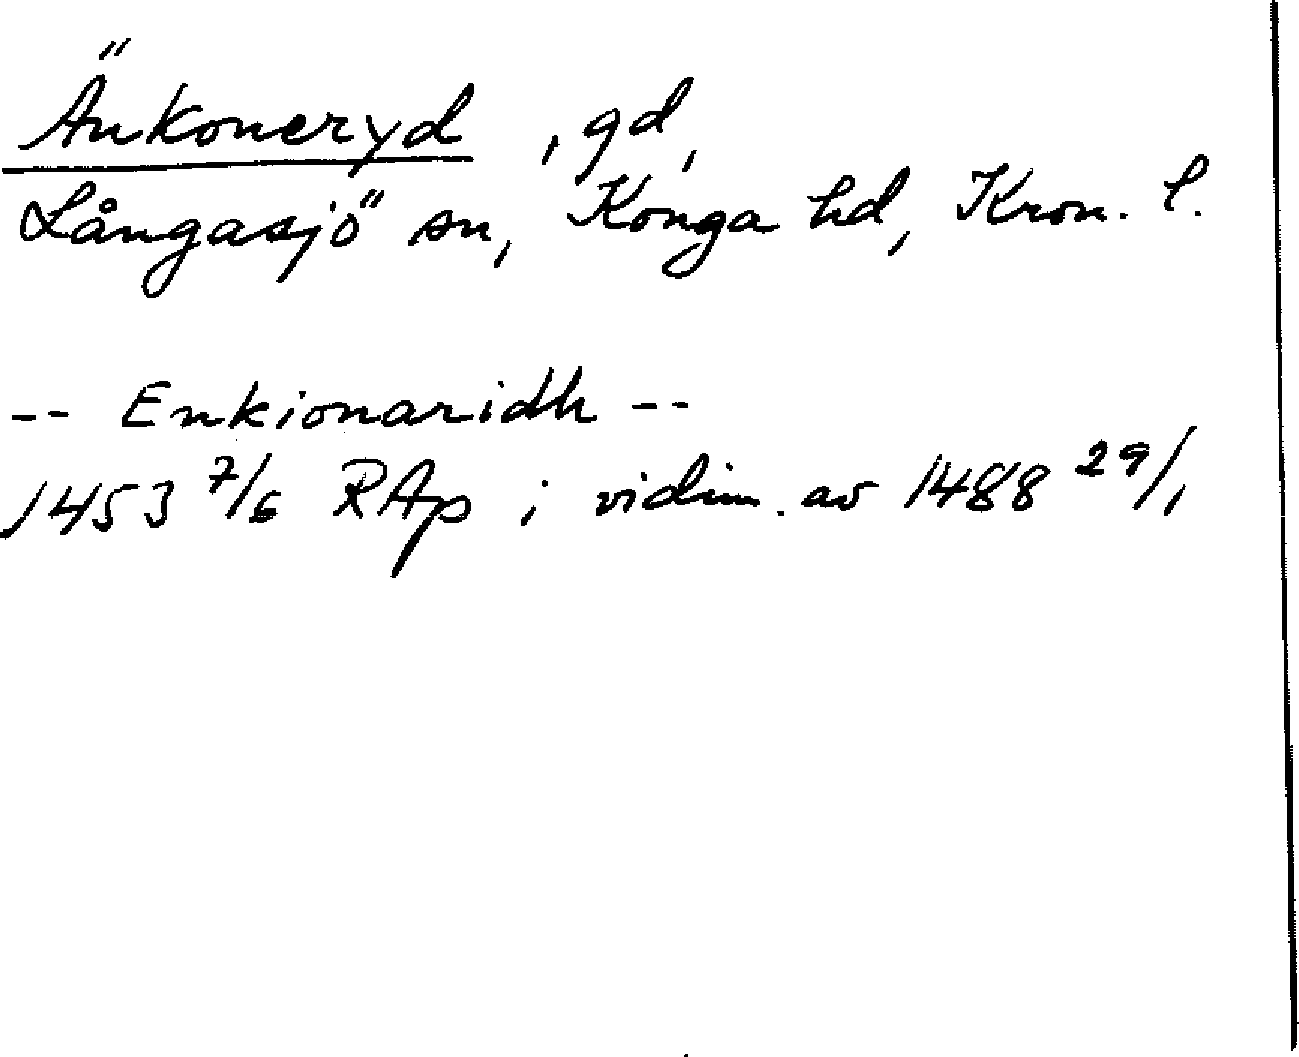 Änkoneryd, gd,
Långasjö sn, Konga hd, Kron. l.
-- Enkionaridh --
1453 7/6 RAp i vidim. av 1488 29/1